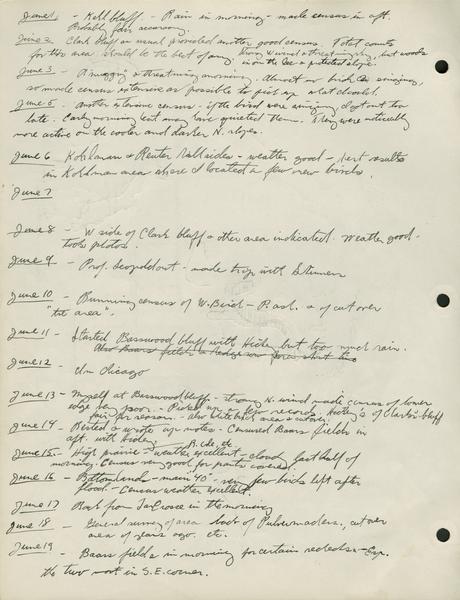 June 1 - Kehl bluff. - Rain in morning - made census in aft.
Probably fair accuracy.
June 2 Clark bluff as usual provided another good census. Total counts
for this area should be the best of any. Strong W wind & threatening, but woods
in on the lee & protected slope.
June 3 - A muggy & threatening morning. Almost no birds singing,
so made census extensive as possible to pick up what I could.
June 5 - Another extensive census - if the birds were singing I got out too
late. Early morning heat may have quieted them. They were noticeably
more active on the cooler and darker N. slopes.
June 6 Kohlman & Reuter hillsides - weather good - best results
in Kohlman area where I located a few new birds.
June 7
June 8 - W side of Clark bluff & other area indicated. Weather good -
took photos.
June 9 - Prof. Leopold out - made trip with
June 10 - Running census of W. Bird - P. and & of cut over
"tit area".
June 11 - Started Basswood bluff with Hickey but too much rain.
Also Baars fields
June 12 - In Chicago
June 13 - Myself at Basswood bluff - strong W. wind made census of lower
edge very poor - Picked up a few records. Hickey's of Clark's bluff
fair for season - also area & cutover
June 14 - Rested & wrote up notes - Censused Baars fields in
aft. with Hickey
June 15 - High prairie - weather excellent - cloudy last half of
morning. Census very good for parts covered.
June 16 - Bottomlands - main 40 - very few birds left after
flood. - Census weather excellent.
June 17 Back from LaCrosse in the morning
June 18 - General survey of area back of Pulvermachers, cutover
area of years ago. etc.
June 19 - Baars fields in morning for certain rechecks - Esp.
the two in S.E. corner.